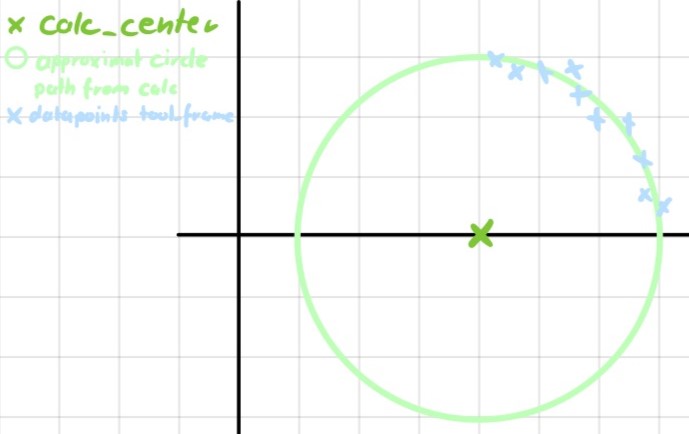 x calc_center
approximat circle
path from calc
x datapoints toolframe